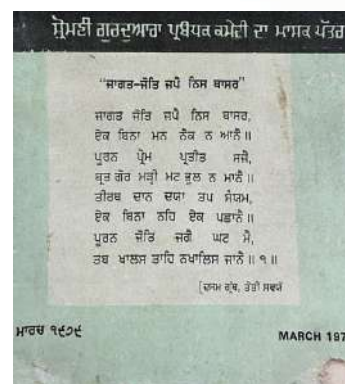 ਸ਼੍ਰੋਮਣੀ ਗੁਰਦੁਆਰਾ ਪ੍ਰਬੰਧਕ ਕਮੇਟੀ ਦਾ ਮਾਸਕ ਪੱਤਰ
"ਜਾਗਤ-ਜੋਤਿ ਜਪੈ ਨਿਸ ਬਾਸਰ"
ਜਾਗਤ ਜੋਤਿ ਜਪੈ ਨਿਸ ਬਾਸਰ,
ਏਕ ਬਿਨਾ ਮਨ ਨੈਕ ਨ ਆਨੈ॥
ਪੂਰਨ ਪ੍ਰੇਮ ਪ੍ਰਤੀਤ ਸਜੈ,
ਬ੍ਰਤ ਗੋਰ ਮੜ੍ਹੀ ਮਟ ਭੂਲ ਨ ਮਾਨੈ॥
ਤੀਰਥ ਦਾਨ ਦਯਾ ਤਪ ਸੰਯਮ,
ਏਕ ਬਿਨਾ ਨਹਿ ਏਕ ਪਛਾਨੈ॥
ਪੂਰਨ ਜੋਤਿ ਜਗੈ ਘਟ ਮੈ,
ਤਬ ਖਾਲਸ ਤਾਹਿ ਨਖਾਲਿਸ ਜਾਨੈ॥੧॥
(ਦਸਮ ਗ੍ਰੰਥ, ਤੇਤੀ ਸਵਯੇ
ਮਾਰਚ ੧੯੭੯
MARCH 197